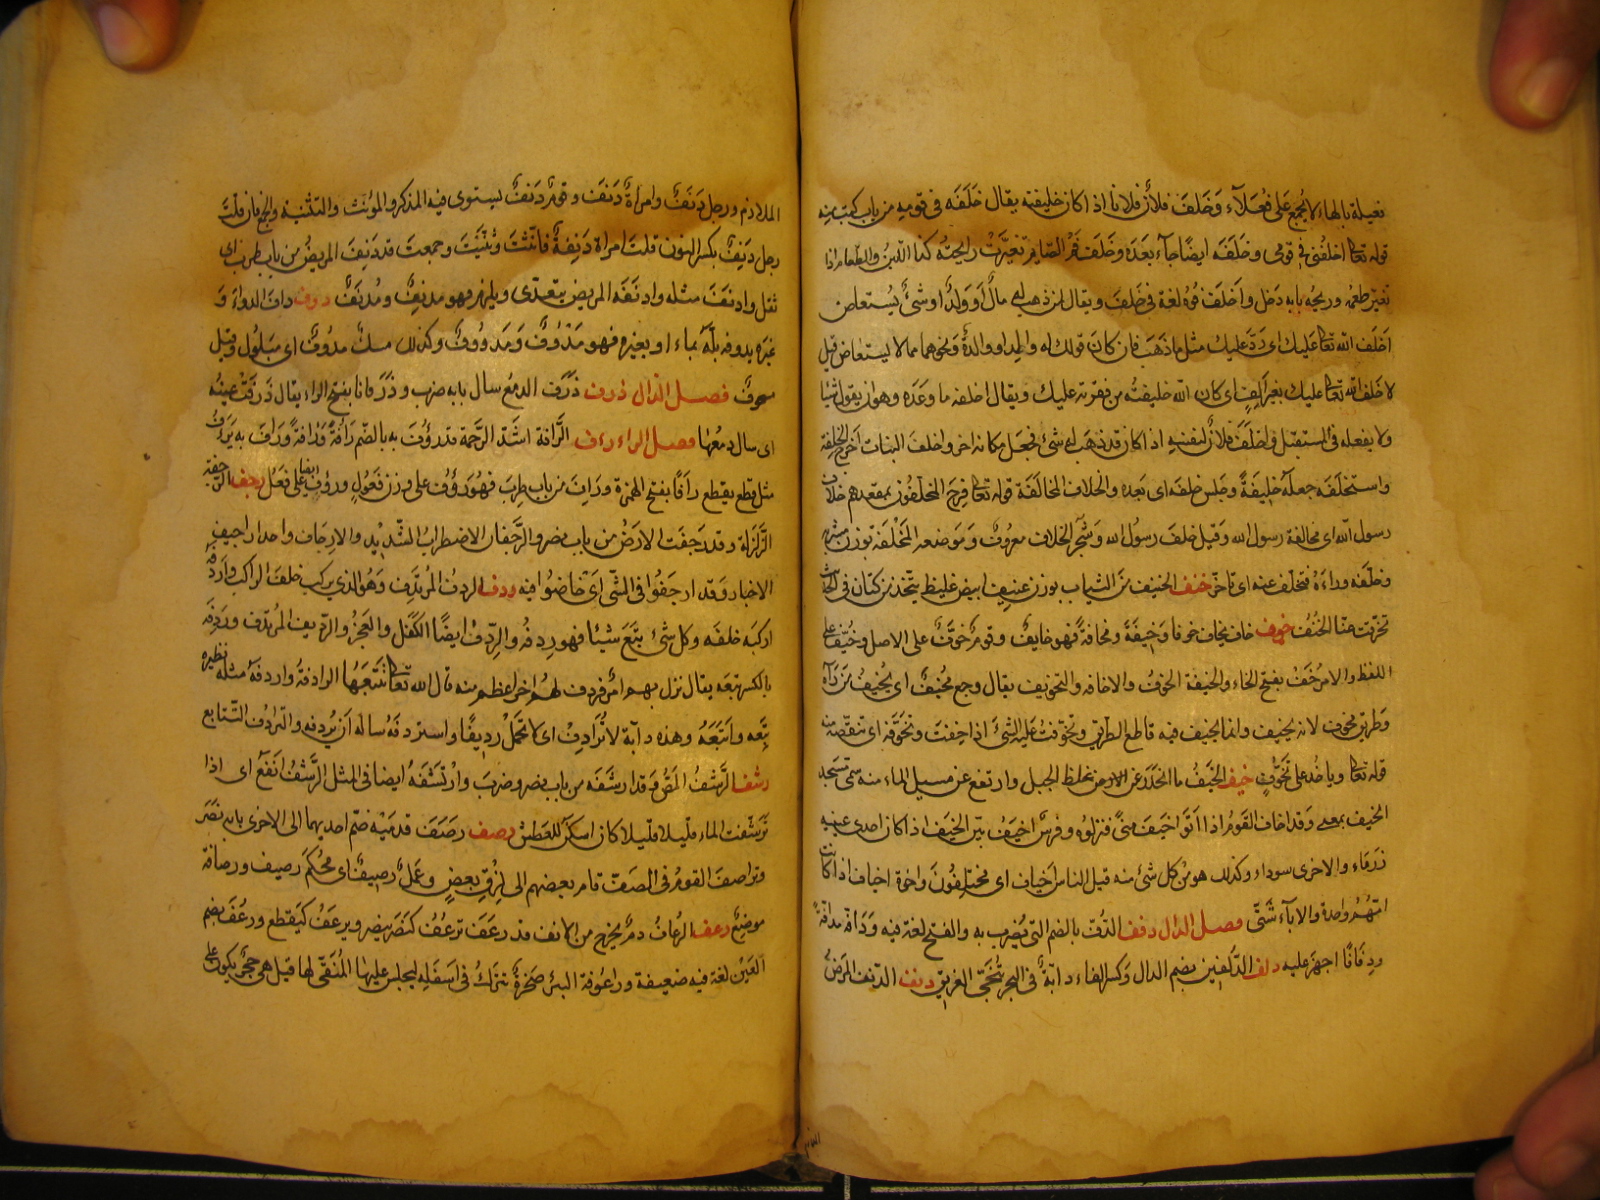 فعيلة بالهاء لا يجمع على فعلاء وخلف فلان فلانا اذا كان خليفته يقال خلفه فى قومه من باب كتب ومنه
قوله تعالى اخلفنى فى قومى وخلفه ايضا جاء بعده وخلف فم الصايم تغيرت رايحته كذا اللبن والطعام اذا
تغير طعمه وريحه بابه دخل واخلف فوه لغة فى خلف ويقال لمن ذهب له مال او ولد او شئ يستعاض
اخلف الله تعالى عليك اى رد عليك مثل ما ذهب فان كان قولك له والد او والدة ونحوهما مما لا يستعاض قيل
خلف الله تعالى عليك بغير الف اى كان الله خليفته من فقدته عليك ويقال اخلفه ما وعده وهو ان يقول شيا
ولا يفعله فى المستقبل واخلف فلان لنفسه اذا كان قد ذهب له شئ فجعل مكانه اخر واخلف النبات اخرج الخلفة
واستخلفه جعله خليفة وجلس خلفه اى بعده والخلاف المخالفة قوله تعالى فرح المخلفون بمقعدهم خلاف
رسول الله اى مخالفة رسول الله وقيل خلف رسول الله وشجر الخلاف معروف وموضعه المخلفة بوزن متربة
وخلفه وراءه فتخلف عنه اى تاخر خنف الخنيف من الثياب بوزن عنيف ابيض غليظ يتخذ من كتان فى الحديث
تخرقت عنا الخنف خوف خاف يخاف خوفا وخيفة ومخافة فهو خايف وقوم خوف على الاصل وخيف على
اللفظ والامر خف بفتح الخاء والخيفة الخوف والاخافه والتخويف يقال وجع مخيف اى يخيف من رآه
وطريق مخوف لانه لا يخيف وانما يخيف فيه قاطع الطريق وتخوفت عليه الشئ اذا خفت وتخوفه اى تنقصه منه
قوله تعالى او ياخذهم على تخوف خيف الخيف ما انحدر عن الارض غلظ الجبل وارتفع عن مسيل الماء منه سمى مسجد
الخيف بمعنى وقد اخاف القوم اذا اتوا خيف منى فنزلوه وفرس اخيف بين الخيف اذا كان احدى عينيه
زرقاء والاخرى سوداء وكذلك هو من كل شئ منه قيل الناس اخياف اى مختلفون واخوة اخياف اذا كانت
امهم واحدة والاباء شتى فصل الدال دفف الدف بالضم التى يضرب به والفتح لغة فيه ودافه مدافة
ودفافا اجهز عليه دلف الدلفين بضم الدال وكسر الفاء دابة فى البحر تنجى الغريق دنف الدنف المرض
الملازم ورجل دنف وامراة دنف وقوم دنف يستوى فيه المذكر والمؤنث والتثنية والجمع فان قلت
رجل دنف بكسر النون قلت امراة دنفة فانثت وثنيت وجمعت قد دنف المريض من باب طرب اى
ثقل وادنف مثله وادنفه المرض يتعدى ويلزم فهو مدنف ومدنف دوف داف الدواء و
غيره يدوفه بله بماء او بغيره فهو مدوف ومدووف وكذلك مسك مدوف اى مبلول وقيل
مسحوق فصل الذال ذرف ذرف الدمع سال بابه ضرب وذرفانا بفتح الراء يقال ذرفت عينه
اى سال دمعها فصل الراء رءف الرافة اشد الرحمة قد رؤف به بالضم رافة ورآفة وراف به يرءف
مثل قطع يقطع رأفا بفتح الهمزة ورئف من باب طرب فهو رؤف على وزن فعول ورؤف ايضا على فعل رجف الرجفة
الزلزلة وقد رجفت الارض من باب نصر والرجفان الاضطراب الشديد والارجاف واحد اراجيف
الاخبار وقد ارجفوا فى الشئ اى خاضوا فيه ردف الردف المرتدف وهو الذى يركب خلف الراكب واردفه
اركبه خلفه وكل شئ تبع شيئا فهو ردفه والردف ايضا الكفل والعجز والرديف المرتدف وردفه
بالكسر تبعه يقال نزل بهم امر فردف لهم اخر اعظم منه قال الله تعالى تتبعها الرادفة واردفه مثله نظيره
تبعه واتبعه وهذه دابة لا ترادف اى لا تحمل رديفا واستردفه ساله ان يردفه والترادف التتابع
رشف الرشف المص وقد رشفه من باب نصر وضرب وارتشفه ايضا فى المثل الرشف انقع اى اذا
ترشفت الماء قليلا قليلا كان اسكن للعطش رصف رصف قدميه ضم احديهما الى الاخرى بابه نصر
وتراصف القوم فى الصف قام بعضهم الى لزق بعض وعمل رصيف اى محكم رصيف ورصافة
موضع رعف الرعاف دم يخرج من الانف قد رعف ترعف كنصر ينصر ويرعف كيقطع ورعف بضم
العين لغة فيه ضعيفة وراعوفة البئر صخرة تترك فى اسفله ليجلس عليها المنقى لها قيل هى حجر يكون على